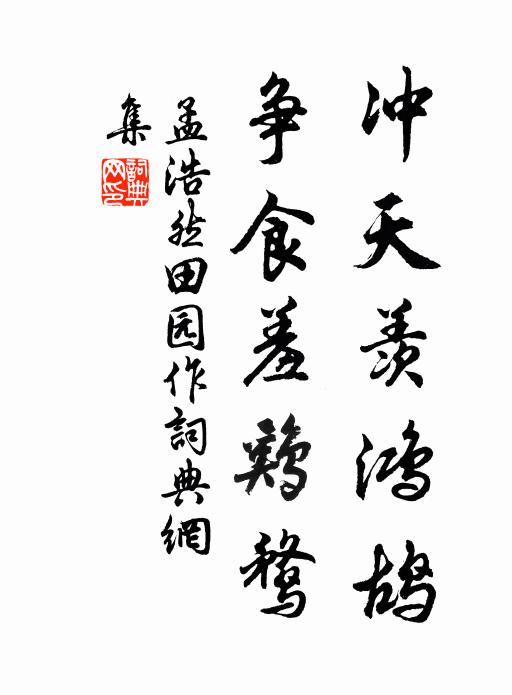 冲天羡鸿鹄
争食羞鷄鹜
孟浩然田园作詞典網
集
詞典網印